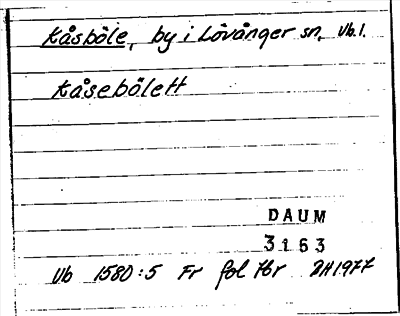 Kåsböle, by i Lövånger sn, Vb.l.
Kåsebölett
DAUM
3163
Vb 1580:5 Fr fol